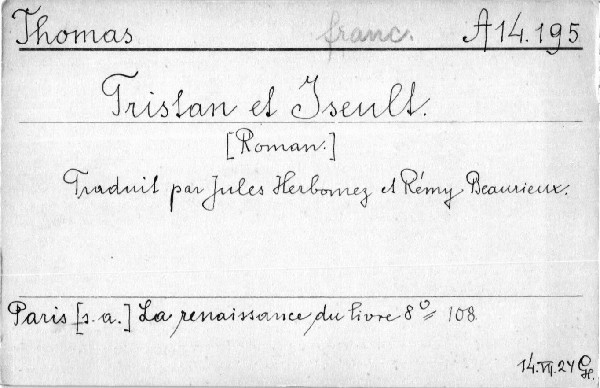 Thomas franc. A 14.195
Tristan et Iseult.
[Roman.]
Traduit par Jules Herbomez et Rémy Beaurieux.
Paris [s. a.] La renaissance du livre 8° 108
14.VII.24